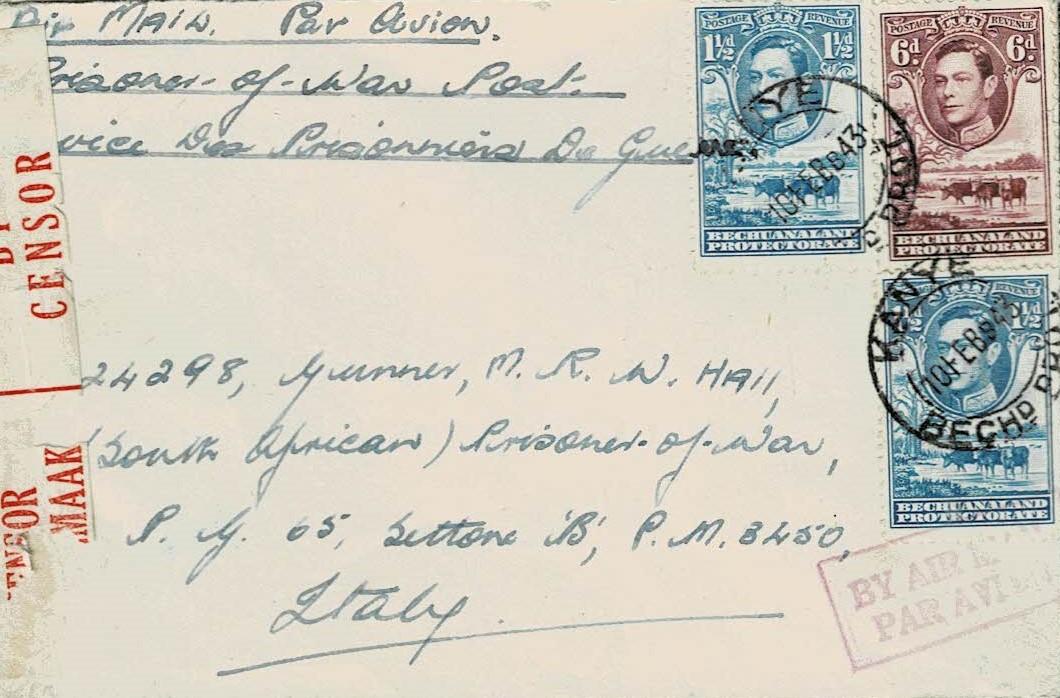 Air MAIL. Par Avion.
Prisoner-of-War Post.
vice Des Prisonniers De Guerre
POSTAGE REVENUE
1½d 1½d
BECHUANALAND
PROTECTORATE
POSTAGE REVENUE
6d. 6d.
BECHUANALAND
PROTECTORATE
10 FEB 43
REVENUE
1½d
BECHUANALAND
PROTECTORATE
KANYE
10 FEB 43
BECHD
CENSOR
MAAK
24298, Gunner, M. R. W. Hall,
(South African) Prisoner-of-War,
P. G. 65, Settone 'B', P.M. 3450,
Italy.
BY AIR
PAR AVI